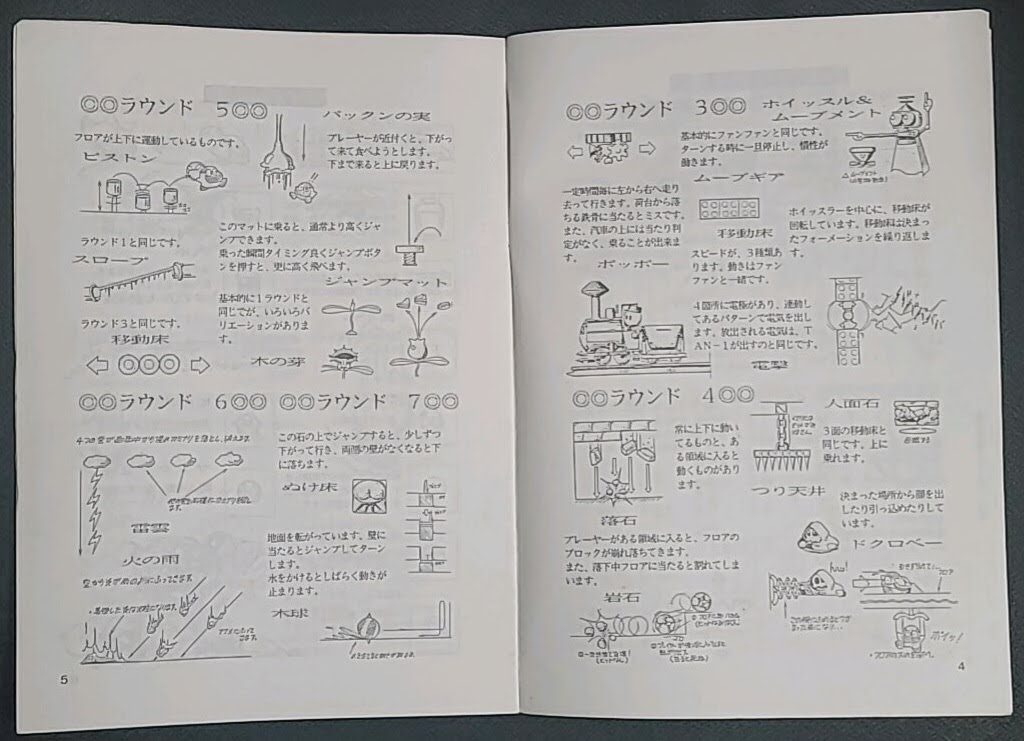 ◎◎ラウンド 3◎◎
ホイッスル&
ムーブメント
基本的にファンファンと同じです。
ターンする時に一旦停止し、慣性が
働きます。
ムーブギア
一定時間毎に左から右へ走り
去って行きます。荷台から落
ちる鉄骨に当たるとミスです。
また、汽車の上には当たり判
定がなく、乗ることが出来ま
す。
ポッポー
移動床
スピードが、3種類あ
ります。動きはファン
ファンと一緒です。
ホイッスラーを中心に、移動床が
回転しています。移動床は決まっ
たフォーメーションを繰り返しま
す。
4箇所に電極があり、連動し
てあるパターンで電気を出し
ます。放出される電気は、T
AN-1が出すのと同じです。
電撃
◎◎ラウンド 4◎◎
常に上下に動い
てるものと、あ
る領域に入ると
動くものがあり
ます。
落石
プレーヤーがある領域に入ると、フロアの
ブロックが崩れ落ちてきます。
また、落下中フロアに当たると割れてしま
います。
岩石
つり天井
人面石
3面の移動床と
同じです。上に
乗れます。
決まった場所から顔を出
したり引っ込めたりして
います。
ドクロベー
ポイッ!
4
◎◎ラウンド 5◎◎
フロアが上下に運動しているものです。
ピストン
パックンの実
プレーヤーが近付くと、下がっ
て来て食べようとします。
下まで来ると上に戻ります。
ラウンド1と同じです。
スロープ
このマットに乗ると、通常より高くジャ
ンプできます。
乗った瞬間タイミング良くジャンプボタ
ンを押すと、更に高く飛べます。
ジャンプマット
ラウンド3と同じです。
移動床
基本的に1ラウンドと
同じでが、いろいろバ
リエーションがありま
す。
木の芽
◎◎ラウンド 6◎◎
雷雲
火の雨
◎◎ラウンド 7◎◎
この石の上でジャンプすると、少しずつ
下がって行き、両側の壁がなくなると下
に落ちます。
ぬけ床
地面を転がっています。壁に
当たるとジャンプしてターン
します。
水をかけるとしばらく動きが
止まります。
木球
5